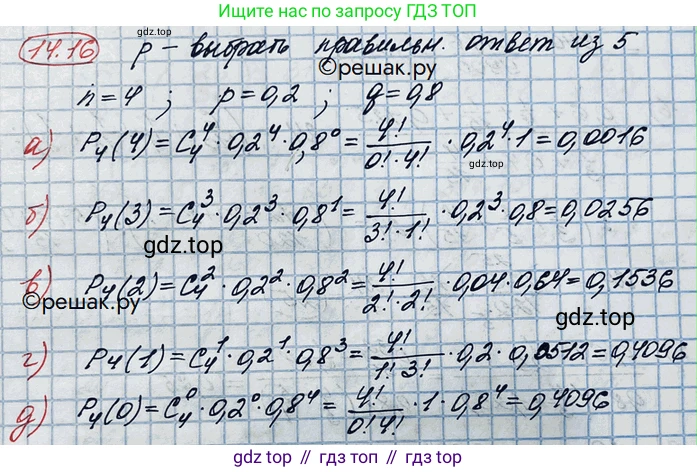 Ищите нас по запросу ГДЗ ТОП
14.16 p – выбрать правильн. ответ из 5
gdz.top
©решак.ру
n=4 ; p=0,2 ; q=0,8
gdz.top
а) P₄(4) = C₄⁴ · 0,2⁴ · 0,8⁰ = 4!/(0!·4!) · 0,2⁴ · 1 = 0,0016
б) P₄(3) = C₄³ · 0,2³ · 0,8¹ = 4!/(3!·1!) · 0,2³ · 0,8 = 0,0256
gdz.top
в) P₄(2) = C₄² · 0,2² · 0,8² = 4!/(2!·2!) · 0,04 · 0,64 = 0,1536
©решак.ру
gdz.top
г) P₄(1) = C₄¹ · 0,2¹ · 0,8³ = 4!/(1!·3!) · 0,2 · 0,0512 = 0,4096
д) P₄(0) = C₄⁰ · 0,2⁰ · 0,8⁴ = 4!/(0!4!) · 1 · 0,8⁴ = 0,4096
gdz.top // gdz.top // gdz.top // gdz.top